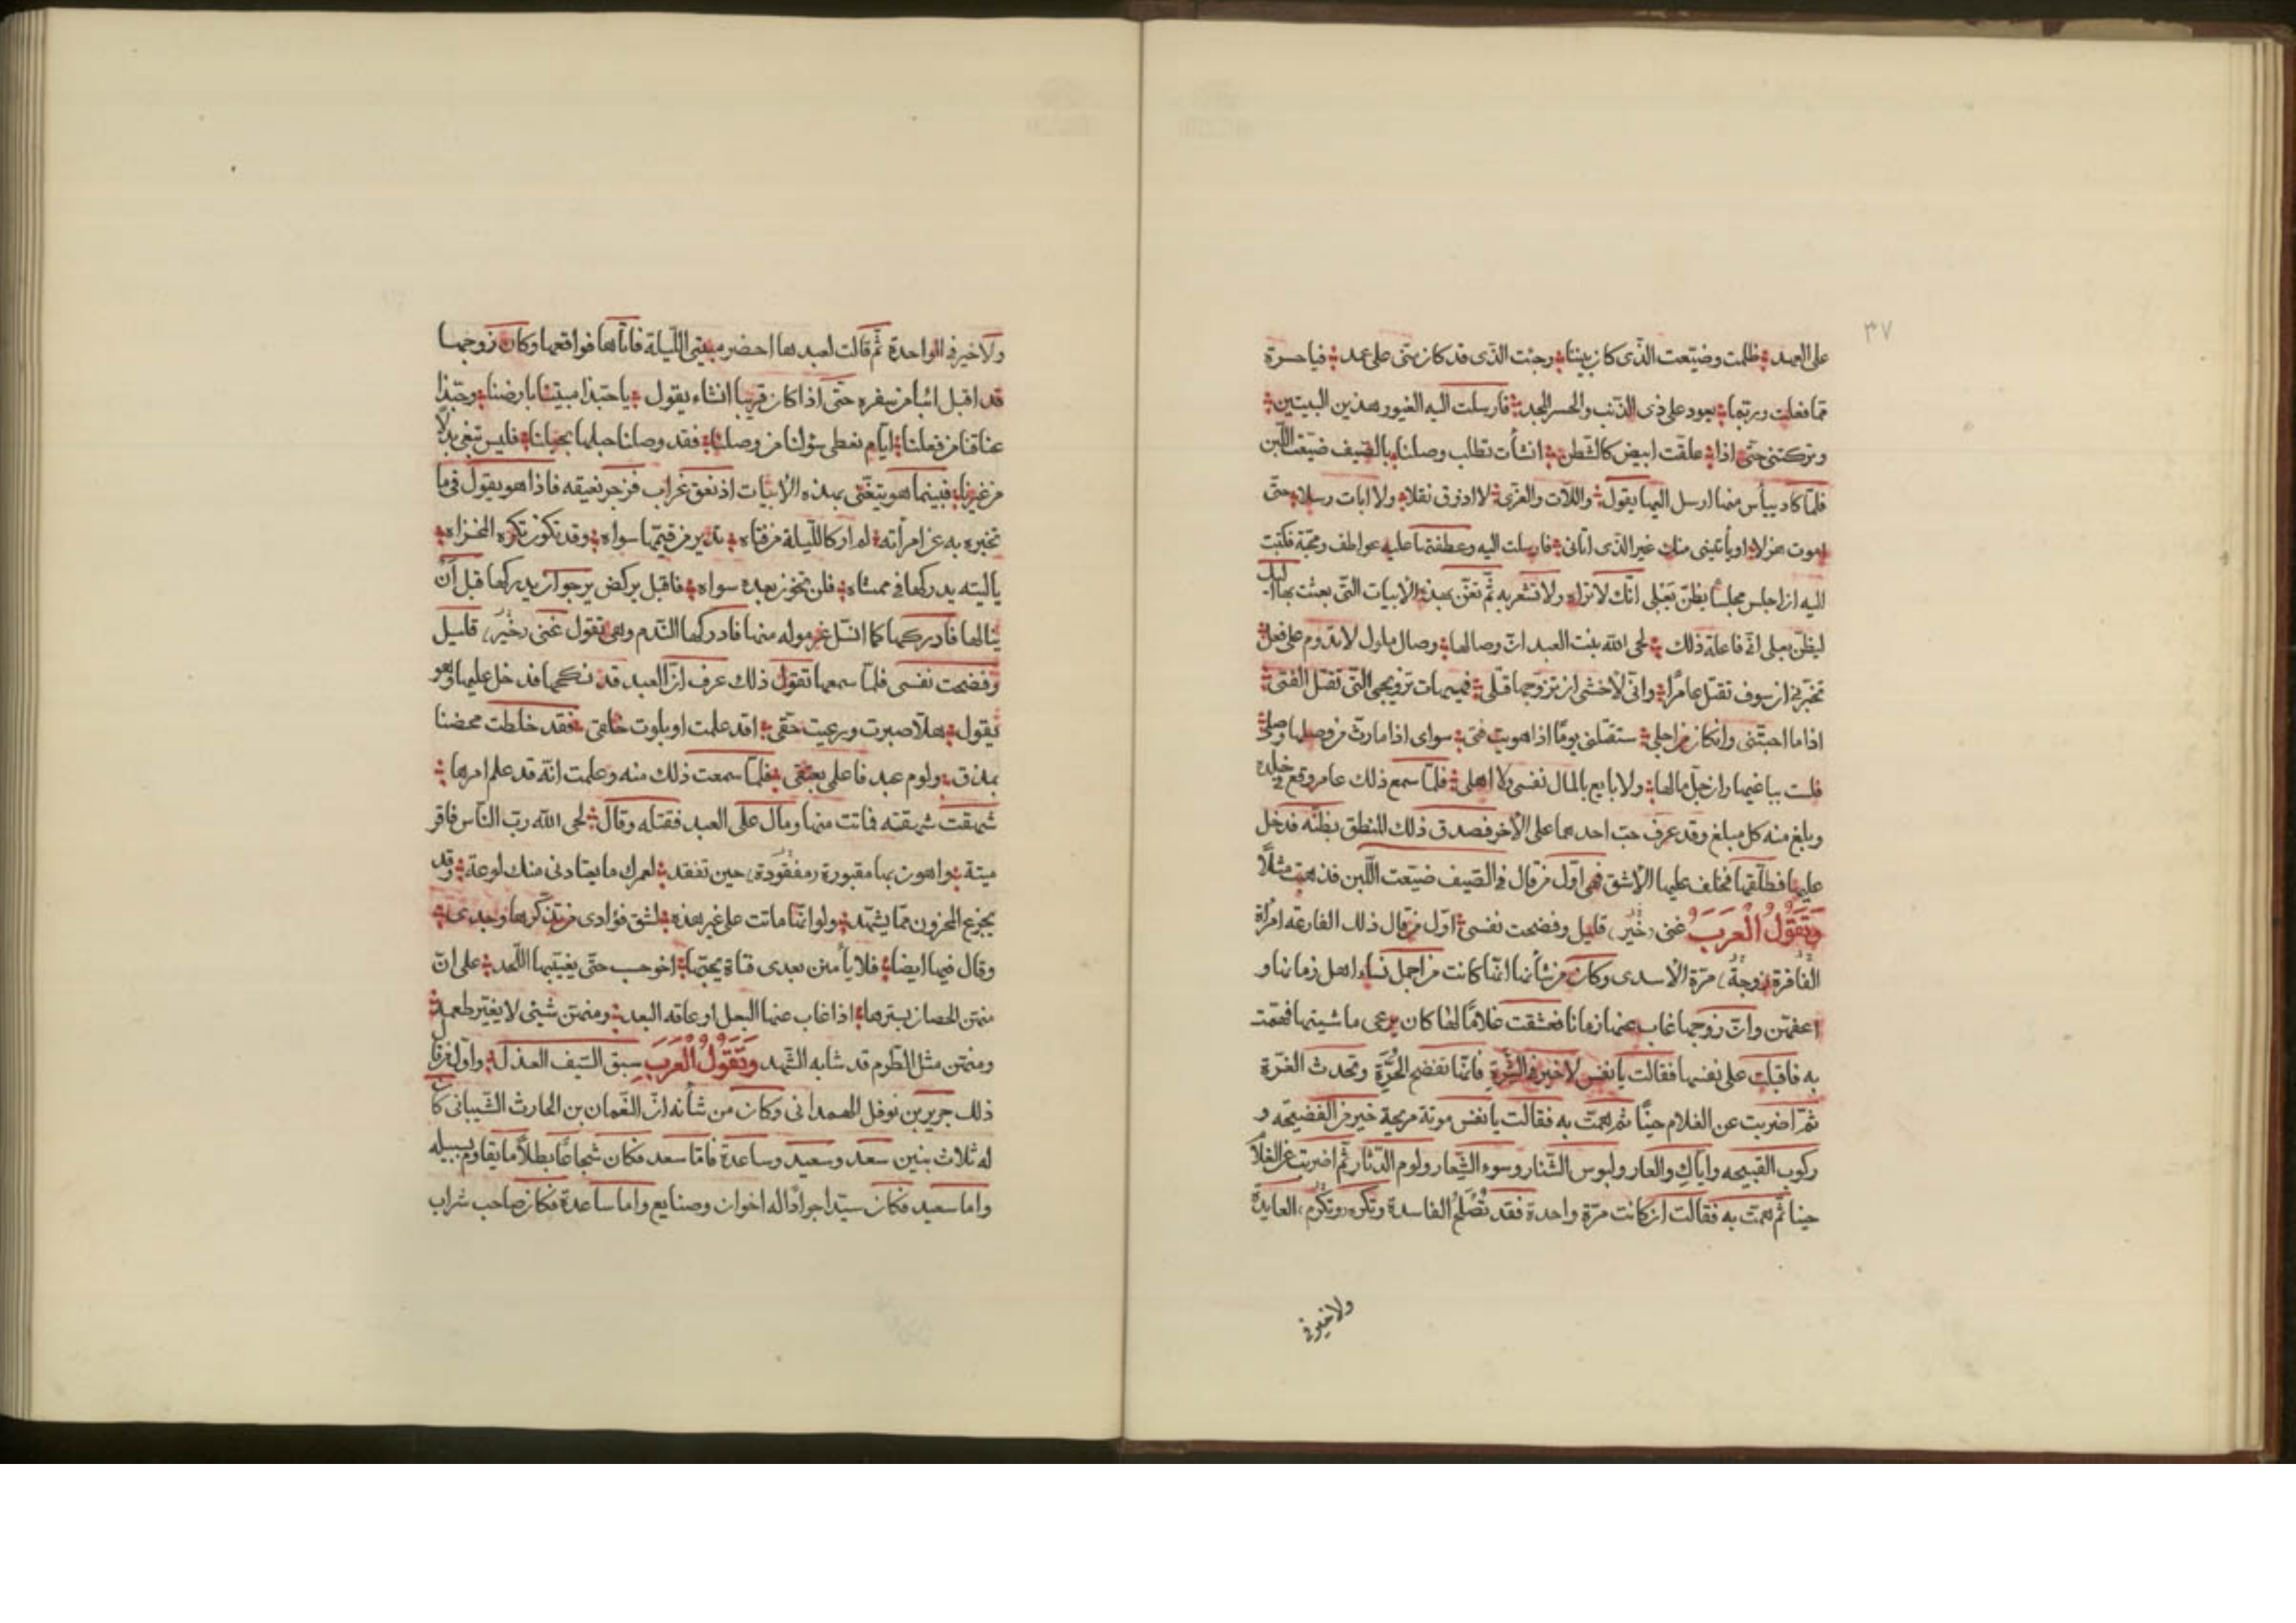 ٣٧
على العهد ؛ ظلمت وضيّعت الذّى كان بيننا ؛ وجئت الذى قد كان منّى على عمد ؛ فيا حسرة
ممّا فعلت وربّما ؛ يعود على ذى الذّنب والحسر المجد ؛ فارسلت اليه الغيور بهذين البيتين ؛
وتركتنى حتّى اذا ؛ علقت ابيض كالشّطن ؛ انشأت تطلب وصلنا ؛ بالصّيف ضيّعت اللّبن
فلمّا كاد ييأس منها ارسل اليها يقول ؛ واللّات والعزّى ؛ لا اذوق نقلا ؛ ولا ابات رسلا ؛ حتّى
اموت هزلا ؛ او يأتينى منك غير الذّى اتانى ؛ فارسلت اليه وعطفتها عليه عواطف ومحبّة فكتبت
اليه ان اجلس مجلسًا يظنّ بعلى انّك لا تراه ولا تشعر به ثمّ تغنّ بهذه الابيات التّى بعثت بها اليك
ليظنّ بعلى انّى فاعلة ذلك ؛ لحى الله بنت العبد انّ وصالها ؛ وصال ملول لا تدوم على فعل ؛
تخبّرنى ان سوف تقتل عامرًا ؛ وانّى لأخشى ان تزوّجها قتلى ؛ فهيهات تزويجى التّى تقتل الفتى ؛
اذا ما احبّتنى وان كان من اجلى ؛ ستقتلنى يومًا اذا هويت فتى ؛ سواى اذا ما رثّ من وصلها وصلى ؛
فلست بباغيها وان جلّ مالها ؛ ولا بايع بالمال نفسى ولا اهلى ؛ فلمّا سمع ذلك عامر وقع فى خلده
وبلغ منه كل مبلغ وقد عرف حبّ احدهما على الأخر فصدق ذلك المنطق بظنّه فدخل
عليها فطلّقها فخلف عليها الأشق فهى اوّل من قال فى الصّيف ضيّعت اللّبن فذهبت مثلًا
وَتَقُولُ الْعَرَبُ غنى (خَيْر) قليل وفضحت نفسى ؛ اوّل من قال ذلك الفارعة امرأة
الفاقرة (زوجة) مرّة الاسدى وكان من شأنها انّها كانت من اجمل نساء اهل زمانها و
اعفهنّ وانّ زوجها غاب عنها زمانا فعشقت غلامًا لها كان يرعى ماشيتها فهمّت
به فاقبلت على نفسها فقالت يا نفس لا خير فى الشّرة فانّها تفضح الحُرّة وتحدث العَرّة
ثمّ اضربت عن الغلام حينًا ثم همّت به فقالت يا نفس موتة مريحة خير من الفضيحه و
ركوب القبيحه وايّاكِ والعار ولبوس الشّنار وسوء الشّعار ولوم الدّثار ثم اضربت عن الغلام
حينا ثم همّت به فقالت ان كانت مرّة واحدة فقد تُصْلَح الفاسدة وتكره (وتكرم) العايدة
ولا خير فى
ولا خير فى الواحدة ثم قالت لعبدها احضر مبيتى اللّيلة فاتاها فواقعها وكان زوجها
قد اقبل ائبا من سفره حتى اذا كان قريبا انشاء يقول ؛ يا حبّذا مبيتنا بارضنا ؛ وحبّذا
عناقنا من فعلنا ؛ ايّام نعطى سؤلنا من وصلنا ؛ فقد وصلنا حبلها بحبلنا ؛ فليس تبغى بدلًا
من غيرنا ؛ فبينما هو يتغنّى بهذه الأبيات اذ نعق غراب فزجر نعيقه فاذا هو يقول فى ما
تخبره به عن امرأته ؛
يا ليته يدركها فى ممشاه ؛ فلن تخوز بعده سواه ؛ فاقبل يركض يرجو ان يدركها قبل ان
ينالها فادركهما كما انسلّ غرموله منها فادركها النّدم وهى تقول غنى (خَيْر) قليل
وفضحت نفسى فلمّا سمعها تقول ذلك عرف انّ العبد قد نكحها فدخل عليها وهو
يقول ؛ هلّا صبرت ورعيت حقى ؛ لقد علمت او بلوت خلقى ؛ فقد خلطت محضنا
بمذق ؛ ولوم عبد فاعلى بعتقى ؛ فلمّا سمعت ذلك منه وعلمت انّه قد علم امرها ؛
شهقت شهقته فماتت منها ومال على العبد فقتله وقال ؛ لحى الله ربّ النّاس فاقر
ميتة ؛ واهون بها مقبورة (مفقُودة) حين تفقد ؛ لعمرك ما يعتادنى منك لوعة ؛ وقد
يجزع المحزون ممّا يشهّد ؛ ولو انّها ماتت على غير هذه ؛ لشق فؤادى من تذكّرها وجدى ؛
وقال فيها ايضا ؛ فلا يأمنن بعدى فتاة يحبّها ؛ اخو حب حتّى يغيّبها اللّحد ؛ على انّ
منهنّ الحصان بسترها ؛ اذا غاب عنها البعل او عاقه البعد ؛ ومنهنّ شيئى لا يغيّر طعمه ؛
ومنهنّ مثل الطّرم قد شابه الشّهد وَتَقُولُ الْعَرَبُ سبق السّيف العذل ؛ واوّل من قال
ذلك جرير بن نوفل الهمدانى وكان من شأنه انّ النّعمان بن الحارث الشّيبانى كان
له ثلاث بنين سعد وسعيد وساعدة فامّا سعد فكان شجاعًا بطلًا ما يقاوم بسبيله
واما سعيد فكان سيّدا جوادًا له اخوان وصنايع واما ساعدة فكان صاحب شراب